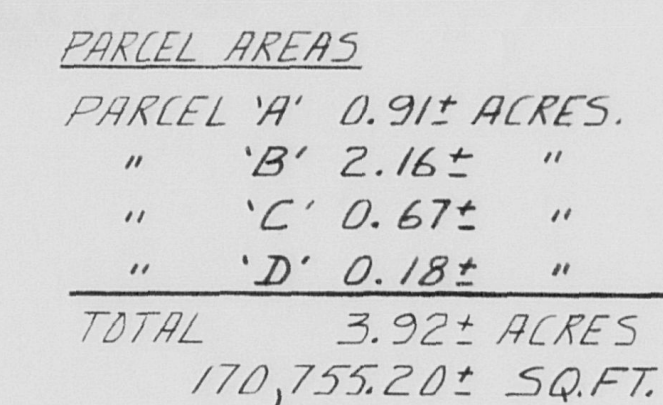 PARCEL AREAS
PARCEL 'A' 0.91± ACRES.
" 'B' 2.16± "
" 'C' 0.67± "
" 'D' 0.18± "
TOTAL 3.92± ACRES
170,755.20± SQ.FT.